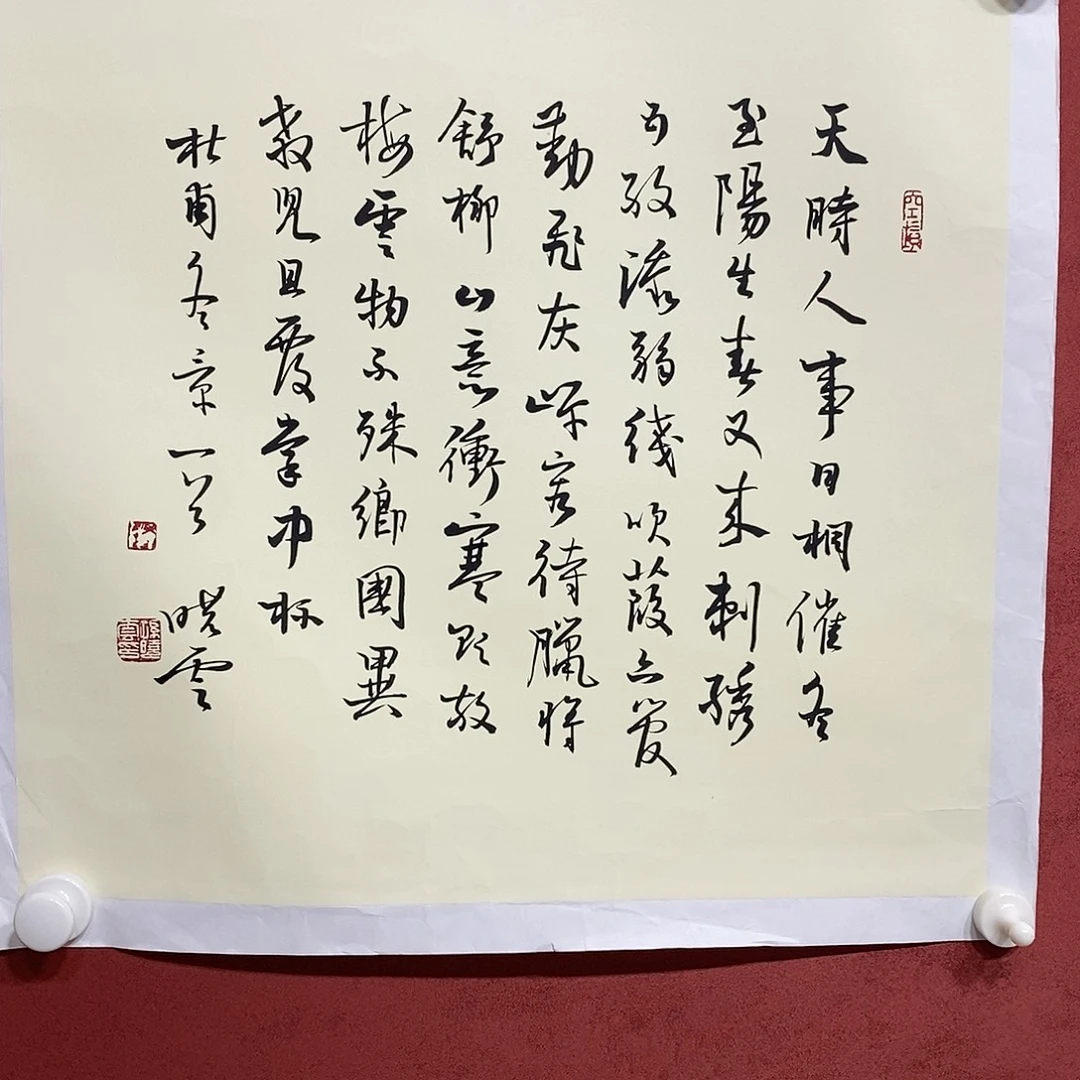 天時人事日相催冬
至陽生春又來刺繡
五紋添弱綫吹葭六管
動飛灰岸容待臘將
舒柳山意衝寒欲放
梅雲物不殊鄉國異
教兒且覆掌中杯
杜甫冬景一首 曉雲
孫曉雲印